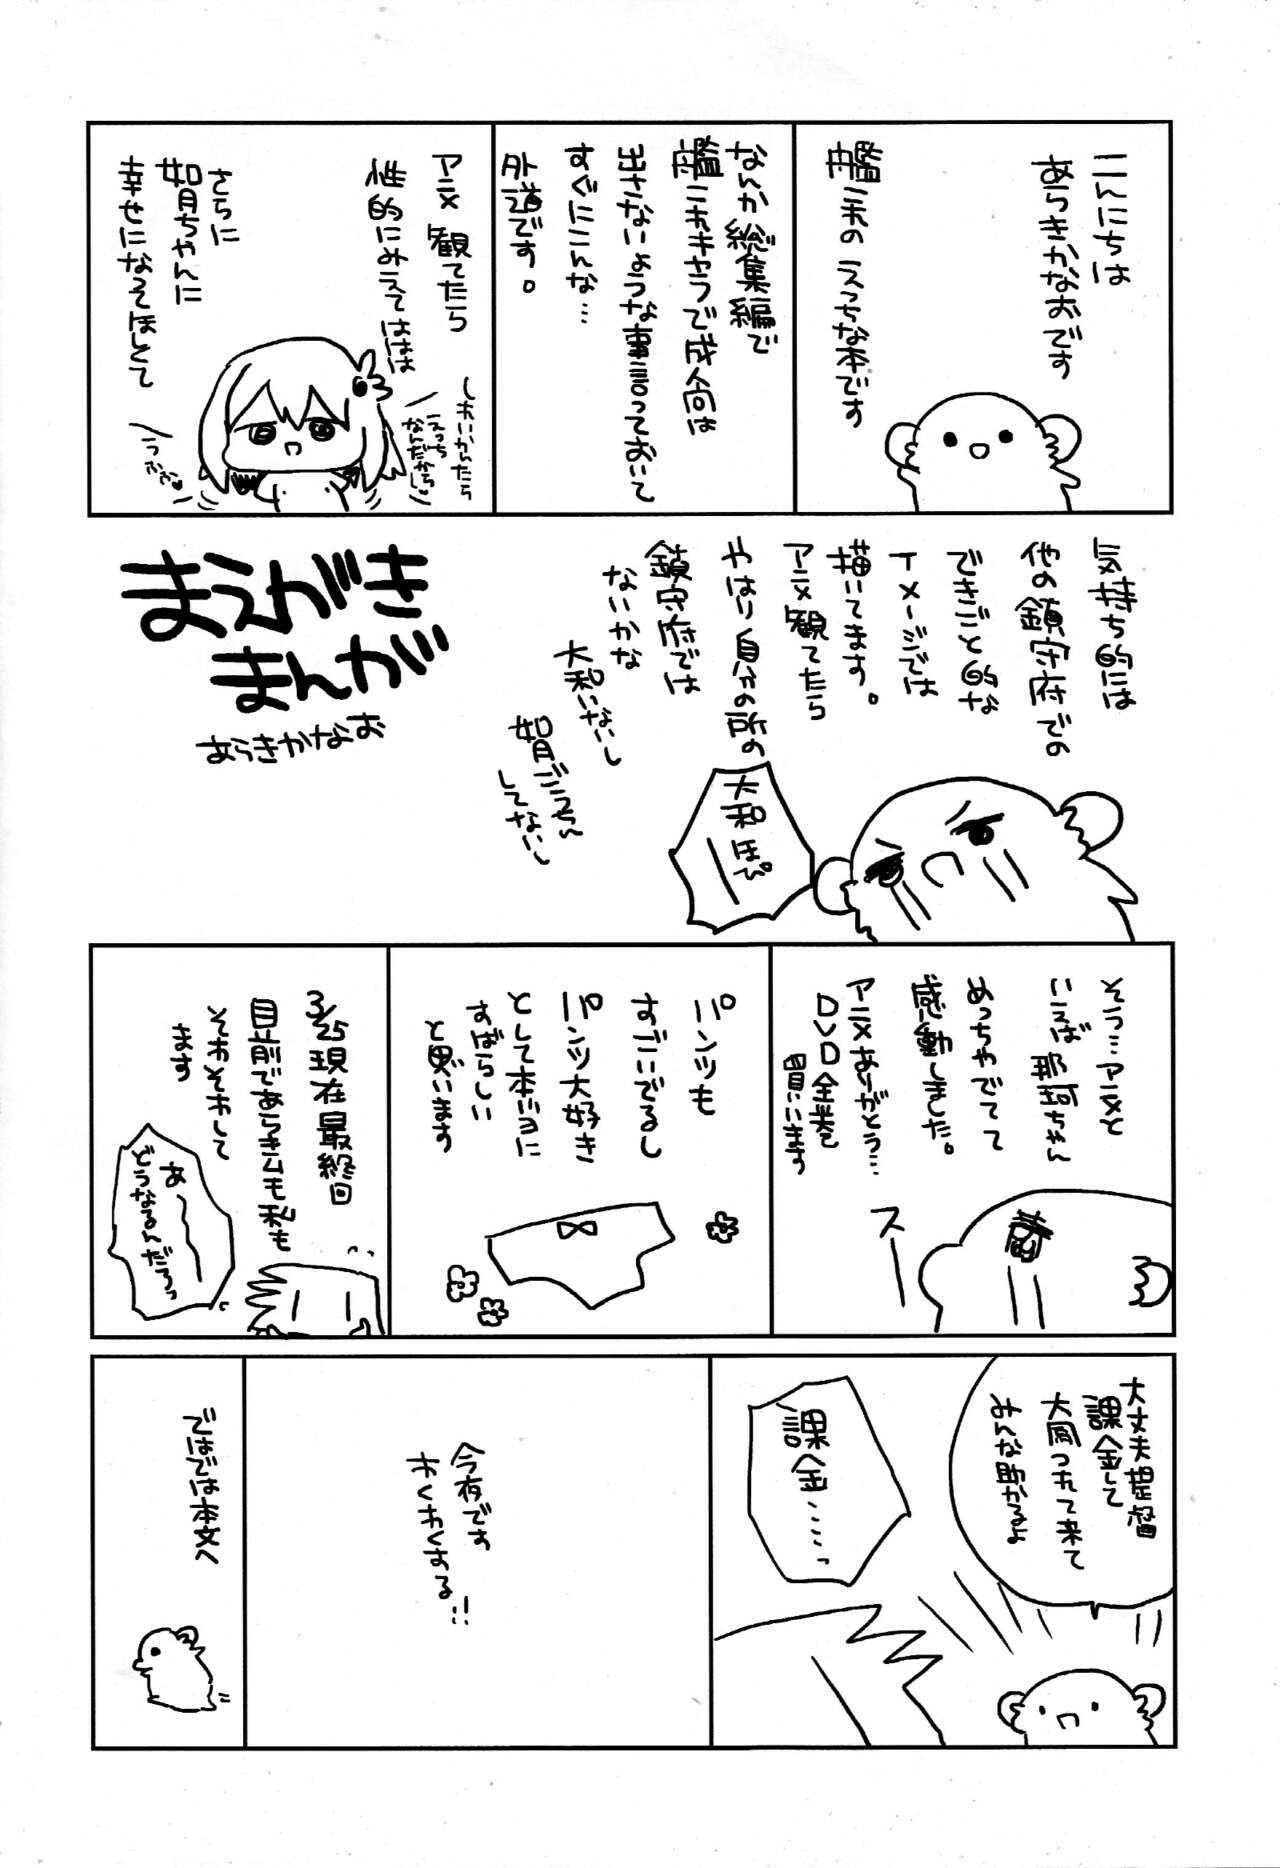 こんにちは
あらきかなおです
艦これのえっちな本です
なんか総集編で
艦これキャラで成人向は
出さないような事言っておいて
すぐにこんな…
外道です。
アニメ観てたら
性的にみえてははは
さらに
如月ちゃんに
幸せになってほしくて
えっち
なんだから♡
うふふ♡
気持ち的には
他の鎮守府での
できごと的な
イメージでは
描いてます。
アニメ観てたら
やはり自分の所の
鎮守府では
ないかな
大和いないし
如月ごうちん
してないし
大和ほぴ
ー
まえがき
まんが
あらきかなお
そう…アニメと
いえば那珂ちゃん
めっちゃでてて
感動しました。
アニメありがとう…
DVD全巻
買います
スー
パンツも
すごいでるし
パンツ大好き
として本当に
すばらしい
と思います
3/25現在最終回
目前であらきムも私も
そわそわして
ます
あ〜
どうなるんだろっ
大丈夫提督
課金して
大和つれて来て
みんな助かるよ
課金……っ
今夜です
わくわくする!!
ではでは本文へ